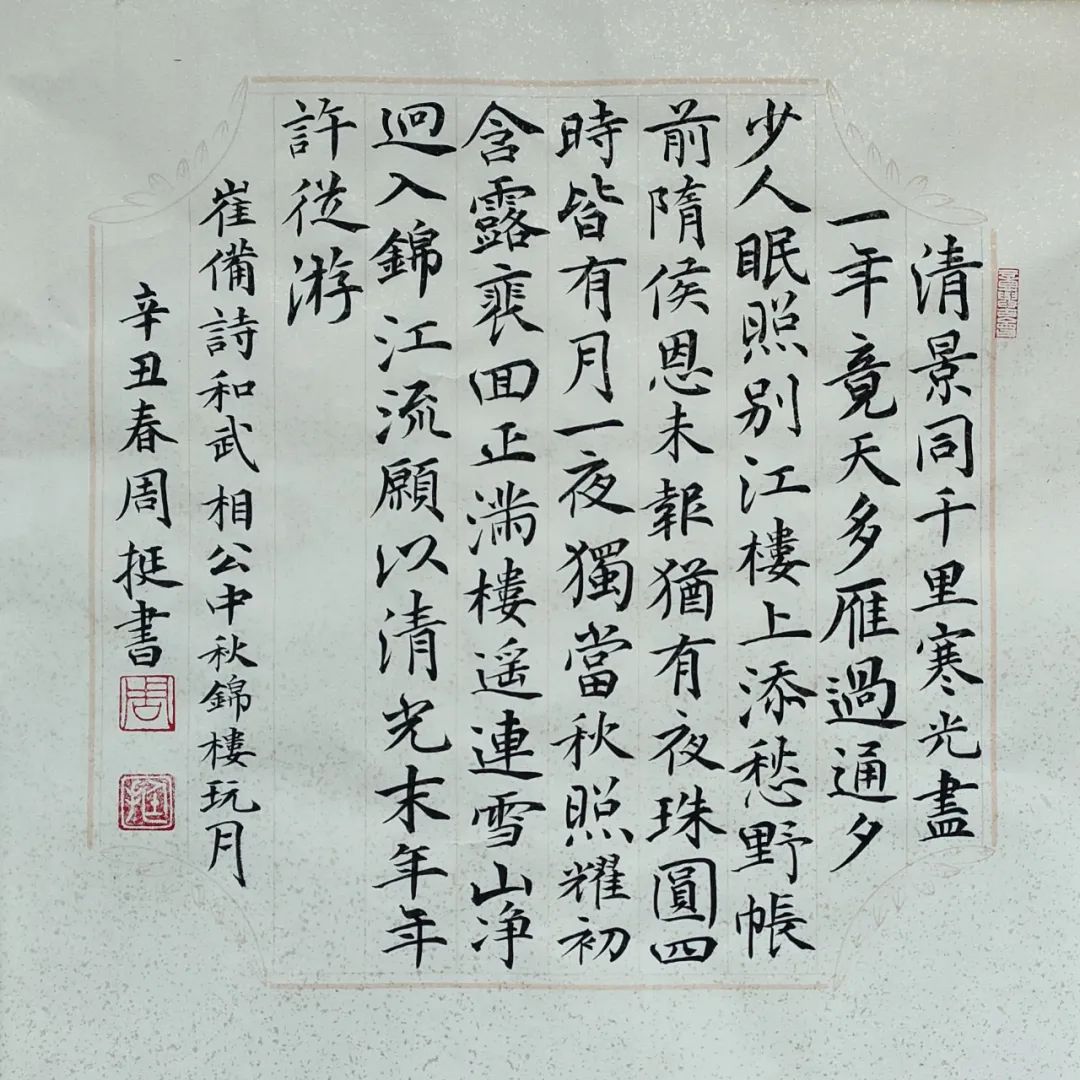 清景同千里寒光盡
一年竟天多雁過通夕
少人眠照別江樓上添愁野帳
前隋侯恩未報猶有夜珠圓四
時皆有月一夜獨當秋照耀初
含露裵囬正滿樓遥連雪山净
迥入錦江流願以清光末年年
許從游
崔備詩和武相公中秋錦樓玩月
辛丑春周挺書
周
挺